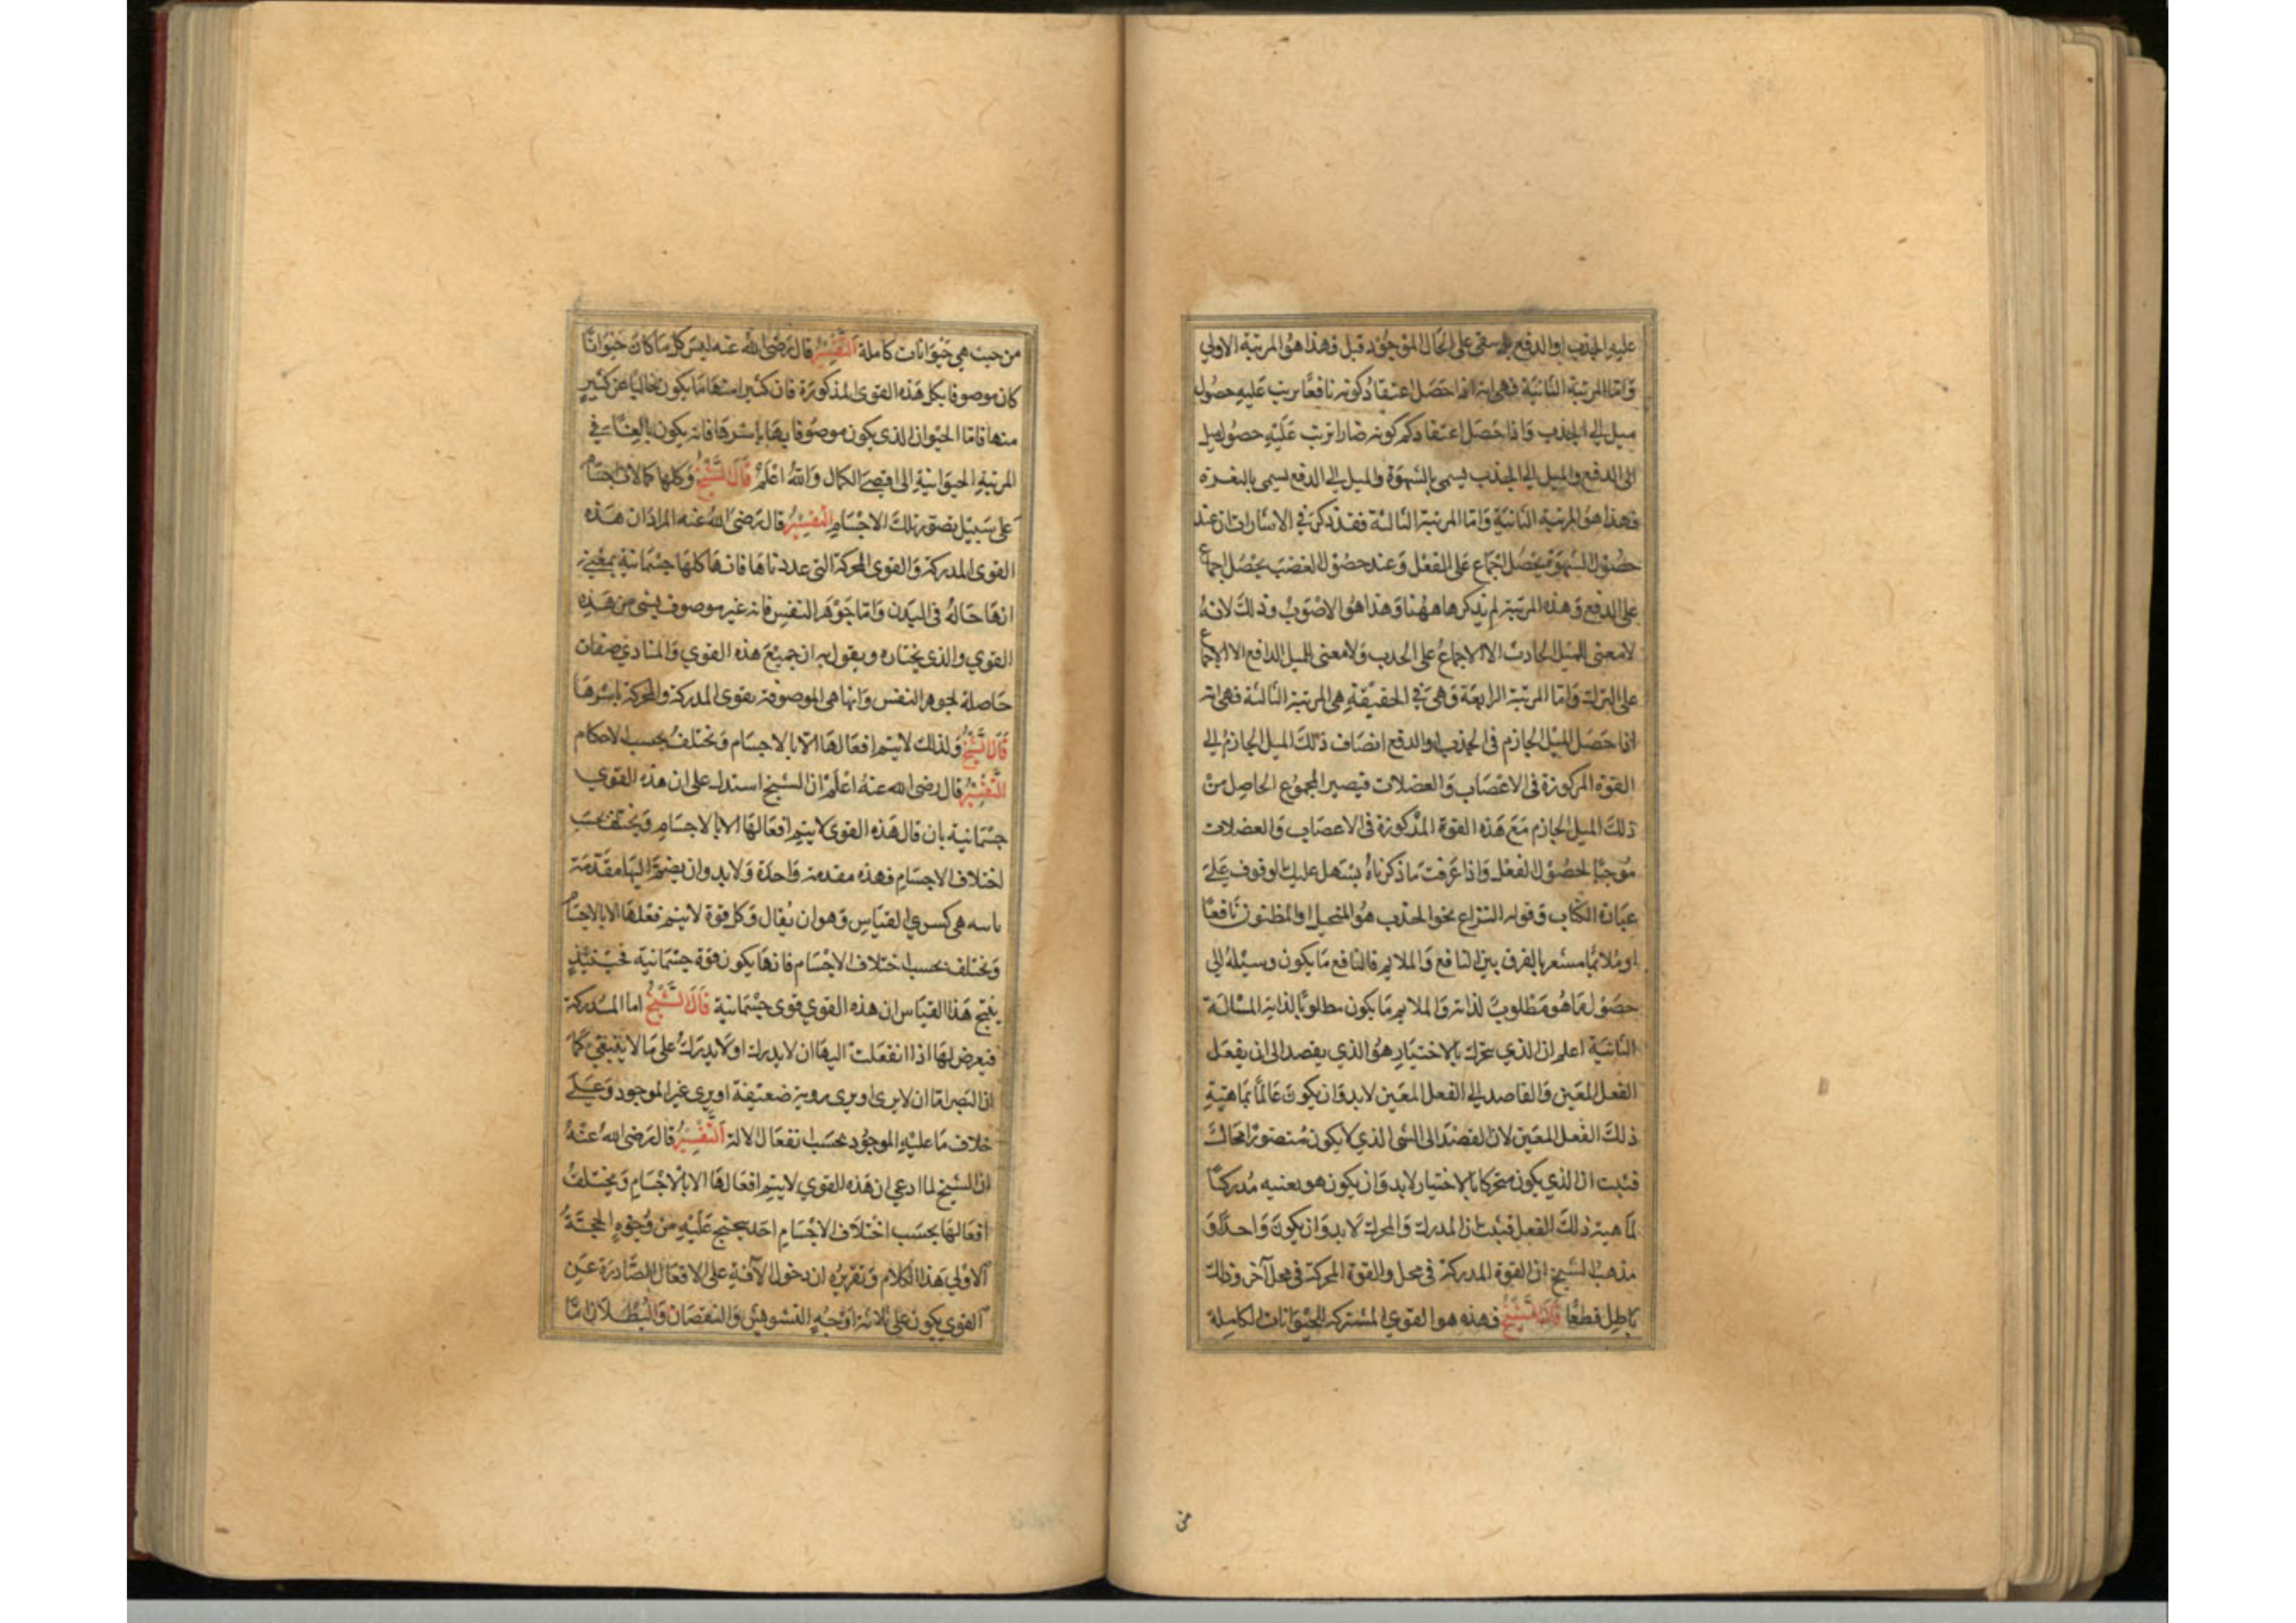 عليه الجذب او الدفع بل يبقى على الحال الموجود قبل وهذا هو المرتبة الاولي
وَامّا المرتبة الثانية فهي انه اذا حَصَل اعتقادُ كونه نافعًا يرتب عليهِ حصُول
ميل الى الجذب وَاذا حَصَل اعتقادكم كونه ضارا ترتب عَليْهِ حصُول ميل
الى الدفع والميل الى الجذب يسمى بالشهوَة والميل الى الدفع يسمى بالنفرة
فهذا هو المرتبة الثانية وَامّا المرتبة الثالثة فقد ذكر في الاشارات ان عند
حصُول الشهوَة يحصُل اجماع عَلى الفعْل وَعند حصُول الغضَب يحْصُل اجماع
على الدفع وَهذه المرتبة لم يذكرها ههُنا وَهذا هُو الاصْوَبُ وذلكَ لانهُ
لا معنى للميْل الحادث الا الاجماعُ على الجذب وَلا معنى للميل الدافع الا الاجماع
على الترك وَامّا المرتبة الرابعَة وَهي في الحقيقةِ هي المرتبة الثالثة فهي انه
اذا حَصَل الميْل الجازم في الجذب او الدفع انضاف ذلكَ الميل الجازم الى
القوة المركوزة في الاعْصَاب وَالعضلات فيصير المجموُع الحاصِل منْ
ذلكَ الميل الجازم مَعَ هَذه القوة المذْكورَة في الاعصَاب وَالعضلات
مُوجبًا لحصُول الفعْل وَاذا عَرفت مَا ذكرناهُ يسْهل عليك الوقوف عَلىَ
عبَارة الكتاب وَقوله النزاع نحو الجذب هُو المتخيل او المظنون نَافعًا
او مُلائمًا مشعر بالفرق بين النافع وَالملايم فالنافع مَا يكون وسيْلةُ الى
حصُول مَا هُو مَطلوبٌ لذاته وَالملايم مَا يكون مطلوبًا لذاته المسْالَة
الثانية اعلم ان الذي يتحرك بالاختيَارِ هُو الذي يقصد الى ان يفعَل
الفعل المعَين وَالقاصد الى الفعل المعَين لا بد وَان يكون عَالمًا بمَاهيّةِ
ذلكَ الفعل المعَين لان القصْدَ الى الشى الذي لا يكون مُتصوّرًا محَالٌ
فثبت ان الذي يكون متحركا بالاختيار لا بد وَان يكون هو بعنيه مُدركًا
لمَاهية ذلكَ الفعل فثبت ان المدرك وَالمحرك لا بد وَان يكون وَاحدًا وَ
مذهبُ الشيخ ان القوة المدركة في محل والقوة المحركة في محل آخر وذلك
بَاطِل قطعًا قالَ الشيْخُ فهذه هو القوي المشتركه للحيوَانات الكاملة
من
من حيث هي حَيوَانات كاملة التفْسِيْرُ قال رَضى الله عنه ليسَ كل مَا كانَ حَيْوَانًا
كان موصوفا بكل هَذه القوى المذكورَة فان كثيرا منهَا مَا يكون خاليًا عَن كثيرٍ
منها فامّا الحَيوان الذى يكون موصُوفا بهَا باسْرهَا فانه يكون بالغًا في
المرتبةِ الحيوَانيةِ الى اقصىَ الكمال وَاللهُ اعْلَمْ قَالَ الشَّيْخُ وَكلها كمالات اجسَام
عَلى سَبيْل تصَوّر تلكَ الاجْسَامِ التفسِيْرُ قال رَضىَ اللهُ عنه المراد ان هَذه
القوى المدركة وَالقوى المحركة التى عددناهَا فانهَا كلها جسْمَانية بمعْنى
انهَا حَالةُ في البدن وَامّا جَوْهَر النفسِ فانه غير موصوف بشى من هَذِهِ
القوي والذى يختاره ويقول به ان جميْعَ هذه القوي وَالمنادي صفات
حَاصلة لجوهر النفس وَانها هى الموصوفة بقوى المدركة والمحركة باسْرهَا
قَالَ الشّيْخُ وَلذلك لا يتم افعَالهَا الّا بالاجسَام وَتختلفُ بحسب الاحكام
التَّفْسِيْرُ قال رضى الله عنهُ اعْلَمْ ان الشيخ استدل على ان هذه القوي
جسْمَانية بان قال هَذه القوى لا يتم افعَالهَا الا بالاجسَامِ وَيختلف بحسَب
اختلاف الاجسَامِ فهذه مقدمة وَاحدَة وَلا بد وان يضمَّ اليهَا مقَدّمَة
ثانيه هى كبرى القيَاسِ وَهو ان يُقال وَكل قوة لا يتم فعْلهَا الا بالاجسَام
وَتختلف بحسب اختلاف الاجْسَام فانهَا يكون قوة جسْمَانية فحيْنئذٍ
ينتج هَذا القيَاس ان هذه القوي قوى جسْمَانية قَالَ الشَّيْخُ اما المدركة
فيعرض لهَا اذا انفعَلت اليها ان لا يدرك او لا يدرَكُ على مَا لا ينبغى كمَا
ان البَصر امّا ان لا يرى او يرى روية ضعيْفة او يرى غير الموجود وَعَلىَ
خلاف مَا عليْهِ الموجوُد بحسَب انفعَال الالة التَّفْسِيْرُ قال رَضى اللهُ عنْهُ
ان الشيْخ لما ادعي ان هَذه القوي لا يتم افعَالهَا الا بالاجْسَامِ وَيختلفُ
افعَالهَا بحسَب اخْتلَاف الاجْسَامِ اخَذ يحتج عَليْهِ من وُجوهِ الحجّةُ
الاوْلي هَذا الكلام وَتقريرُه ان دخول الآفةِ على الافعَال الصّادرَة عَنِ
القوي يكون على ثلاثة اوْجُهٍ التشوهيش وَالنقصَان وَالبُطْلَان امّا